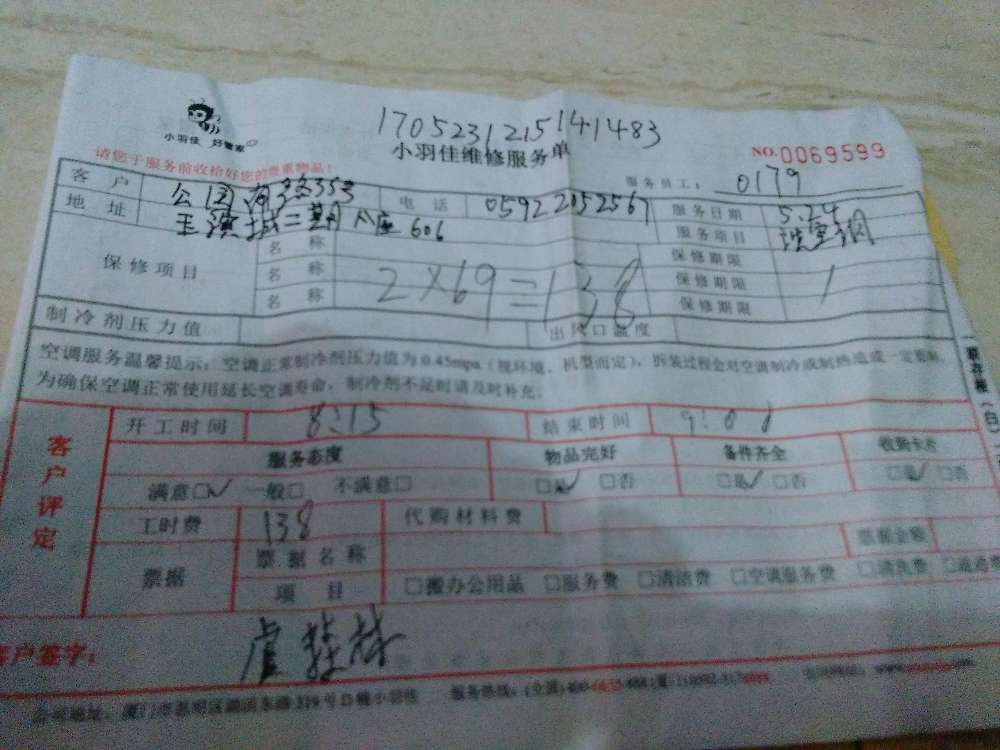 1705231215141483
小羽佳 好管家
小羽佳维修服务单
NO.0069599
请您于服务前收拾好您的贵重物品!
服务员工: 0179
客户 地址 公园南路353 电话 05922052567 服务日期 5.24
二期A座606 服务项目 洗空调
保修项目 名称 保修期限
名称 2×69=138 保修期限 1
名称 保修期限
制冷剂压力值 出风口温度
空调服务温馨提示:空调正常制冷剂压力值为0.45mpa(视环境、机型而定),拆装过程会对空调制冷或制热造成一定影响,
为确保空调正常使用延长空调寿命,制冷剂不足时请及时补充。
客户评定
开工时间 8:15 结束时间 9:01
服务态度 物品完好 备件齐全 收到卡片
满意□✓ 一般□ 不满意□ □是✓ □否 □是✓ □否 □是✓ □否
工时费 138 代购材料费
票据 票据名称 票据金额
项目 □搬办公用品 □服务费 □清洁费 □空调服务费 □清洗费
客户签字:
公司地址:厦门市思明区湖滨东路319号D幢小羽佳 服务热线:(全国)400-